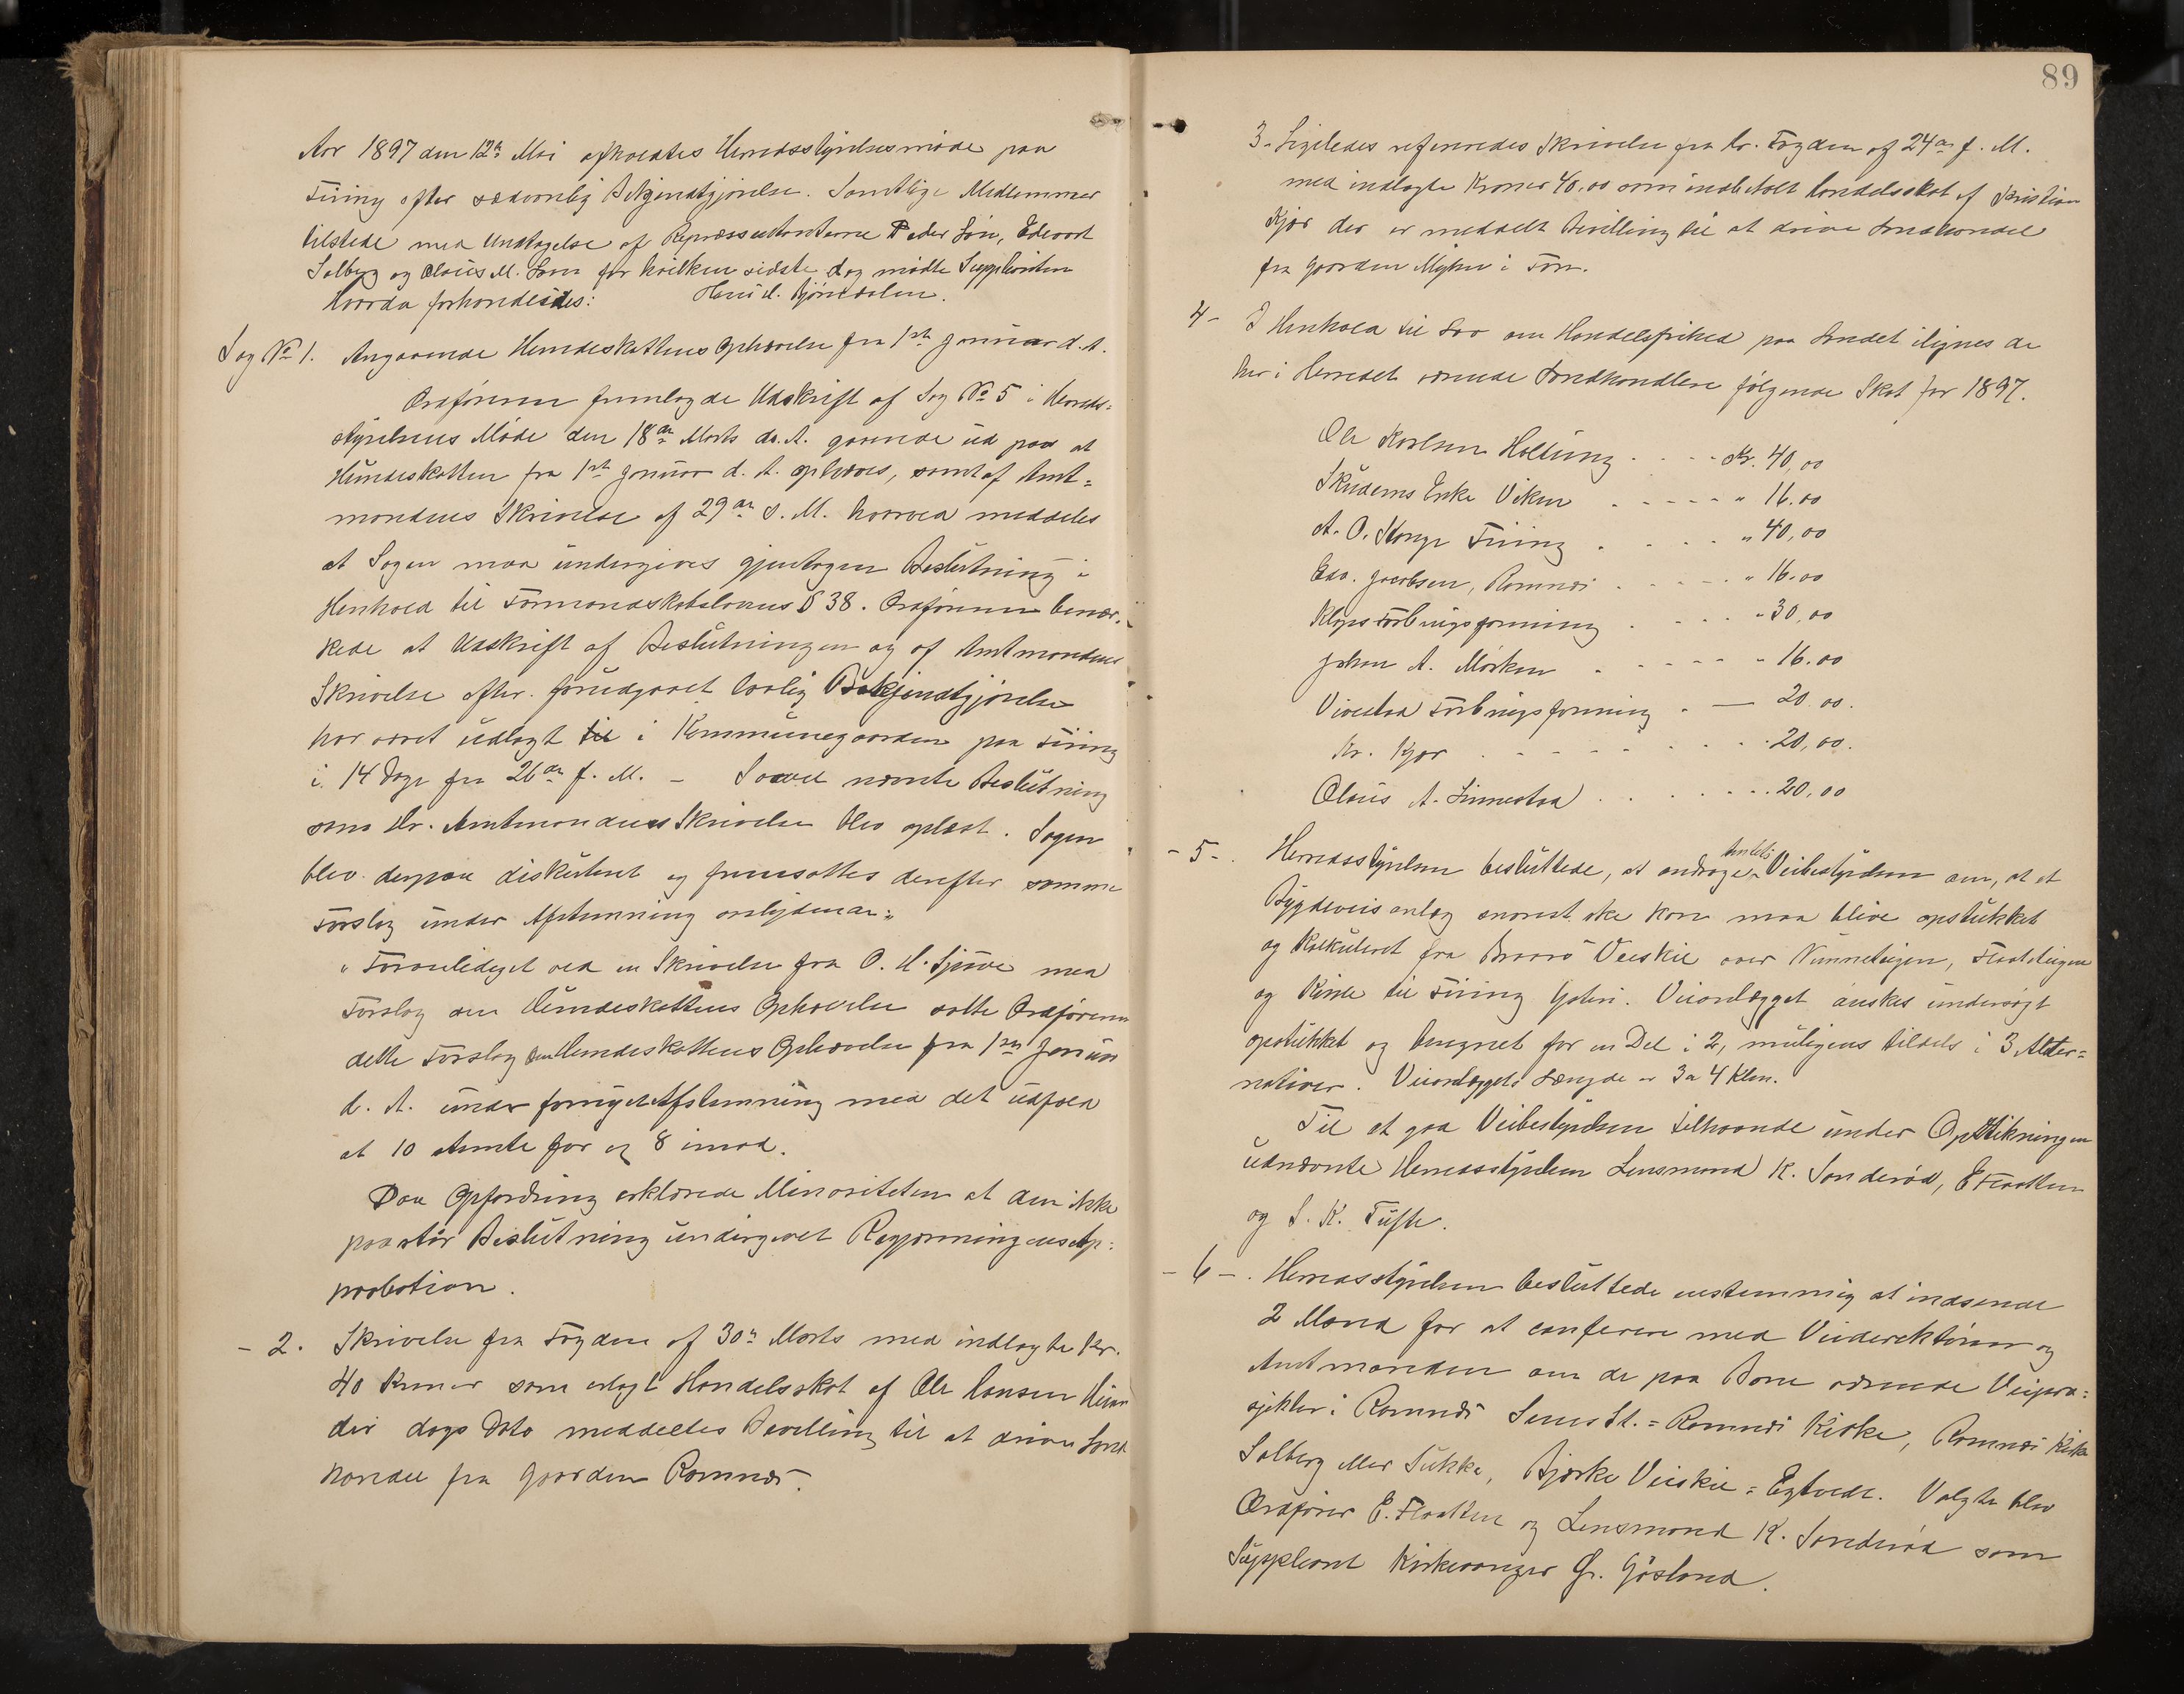 Aar 1897 den 12te Mai afholdtes Herredsstyrelsesmøde paa
Furing efter sædvanlig Bekjendtgjørelse. Samtlige Medlemmer
tilstede med Undtagelse af Repræsentanterne Peder Løn, Edvart
Solberg og Claus M. for hvilken sidste dog mødte Suppleanten
Hvorda forhandledes: Hans H. Bjørndalen.
Sag No 1. Angaaende Hundeskattens Ophævelse fra 1ste Januar d. A.
Ordføreren fremlagde Udskrift af Sag No 5 i Herreds=
styrelsens Møde den 18de Marts ds. A. gaaende ud paa at
Hundeskatten fra 1ste Januar d. A. ophæves, samt af Amt=
mandens Skrivelse af 29de s. M. hvorved meddeles
at Sagen maa undergives gjentagen Beslutning i
Henhold til Formandskabslovens § 38. Ordføreren bemær=
kede at Udskrift af Beslutningen og af Amtmandens
Skrivelse efter forudgaaet lovlig Bekjendtgjørelse
har været udlagt til i Kommunegaarden paa Furing
i 14 Dage fra 26de f. M. – Saavel nævnte Beslutning
som Hr. Amtmandens Skrivelse blev oplæst. Sagen
blev derpaa diskuteret og fremsattes derefter samme
Forslag under Afstemning
"Foranlediget ved en Skrivelse fra O. H. med
Forslag om Hundeskattens Ophævelse satte Ordføreren
dette Forslag om Hundeskattens Ophævelse fra 1ste Januar
d. A. under fornyet Afstemning med det Udfald
at 10 stemte for og 8 imod.
Paa Opfordring erklærede Minoriteten at den ikke
paastår Beslutning undergivet Regjeringens Ap=
probation.
- 2. Skrivelse fra Fogden af 30te Marts med indlagte Kr.
40 Kroner som erlagt Handelsskat af Ole Hansen
der dags Dato meddeltes Bevilling til at drive Land
handel fra Gaarden Ramnæs.
89
3. Ligeledes refereredes Skrivelse fra hr. Fogden af 24de f. M.
med indlagte Kroner 40,00 som indbetalt handelsskat af Kristian
Kjær der er meddelt Bevilling til at drive Landhandel
fra Gaarden Myhre i Fon.
4- I Henhold til Lov om Handelsfrihed paa Landet ilignes de
her i Herredet værende Landhandlere følgende Skat for 1897.
Ole Karlsen Hottung . . . . Kr. 40,00
Skuderns Enke Viken . . . . " 16.00
A. O. Stange Furing . . . . " 40,00
Edv. Jacobsen, Ramnæs . . . . " 16.00
Klops Forbrugsforening . . . . " 30,00
Johan A. Mørken . . . . " 16.00
Vivestad Forbrugsforening . — 20.00.
Kr. Kjær . . . . 20,00.
Olaus A. Linnestad . . . . 20,00
- 5 -. Herredsstyrelsen besluttede, at andrage Amtets Veibestyrelsen om, at et
Bygdeveisanlæg snarest ske kan maa blive opstukket
og kalkuleret fra Veiskil over
og til Furing Veianlægget ønskes undersøgt
opstukket og beregnet for en Del i 2, muligens tildels i 3 Alter=
nativer. Veianlæggets Længde er 3 a 4 Klm.
Til at gaa Veibestyrelsen tilhaande under Opstikningen
udnævnte Herredsstyrelsen Lensmand K. Sønderød, E. Flaatten
og S. K. Tufte.
- 6 -. Herredsstyrelsen besluttede enstemmig at indsende
2 Mænd for at conferere med Veidirektøren og
Amtmanden om de paa Bane værende Veipro=
sjekter: Ramnæs St. = Ramnæs Kirke, Ramnæs Kirke
Solberg eller Sukke, Bjerke Veiskil = Egtvedt. Valgte blev
Ordfører E. Flaatten og Lensmand K. Sønderød som
Suppleant Kirkesanger G. Gåsland.